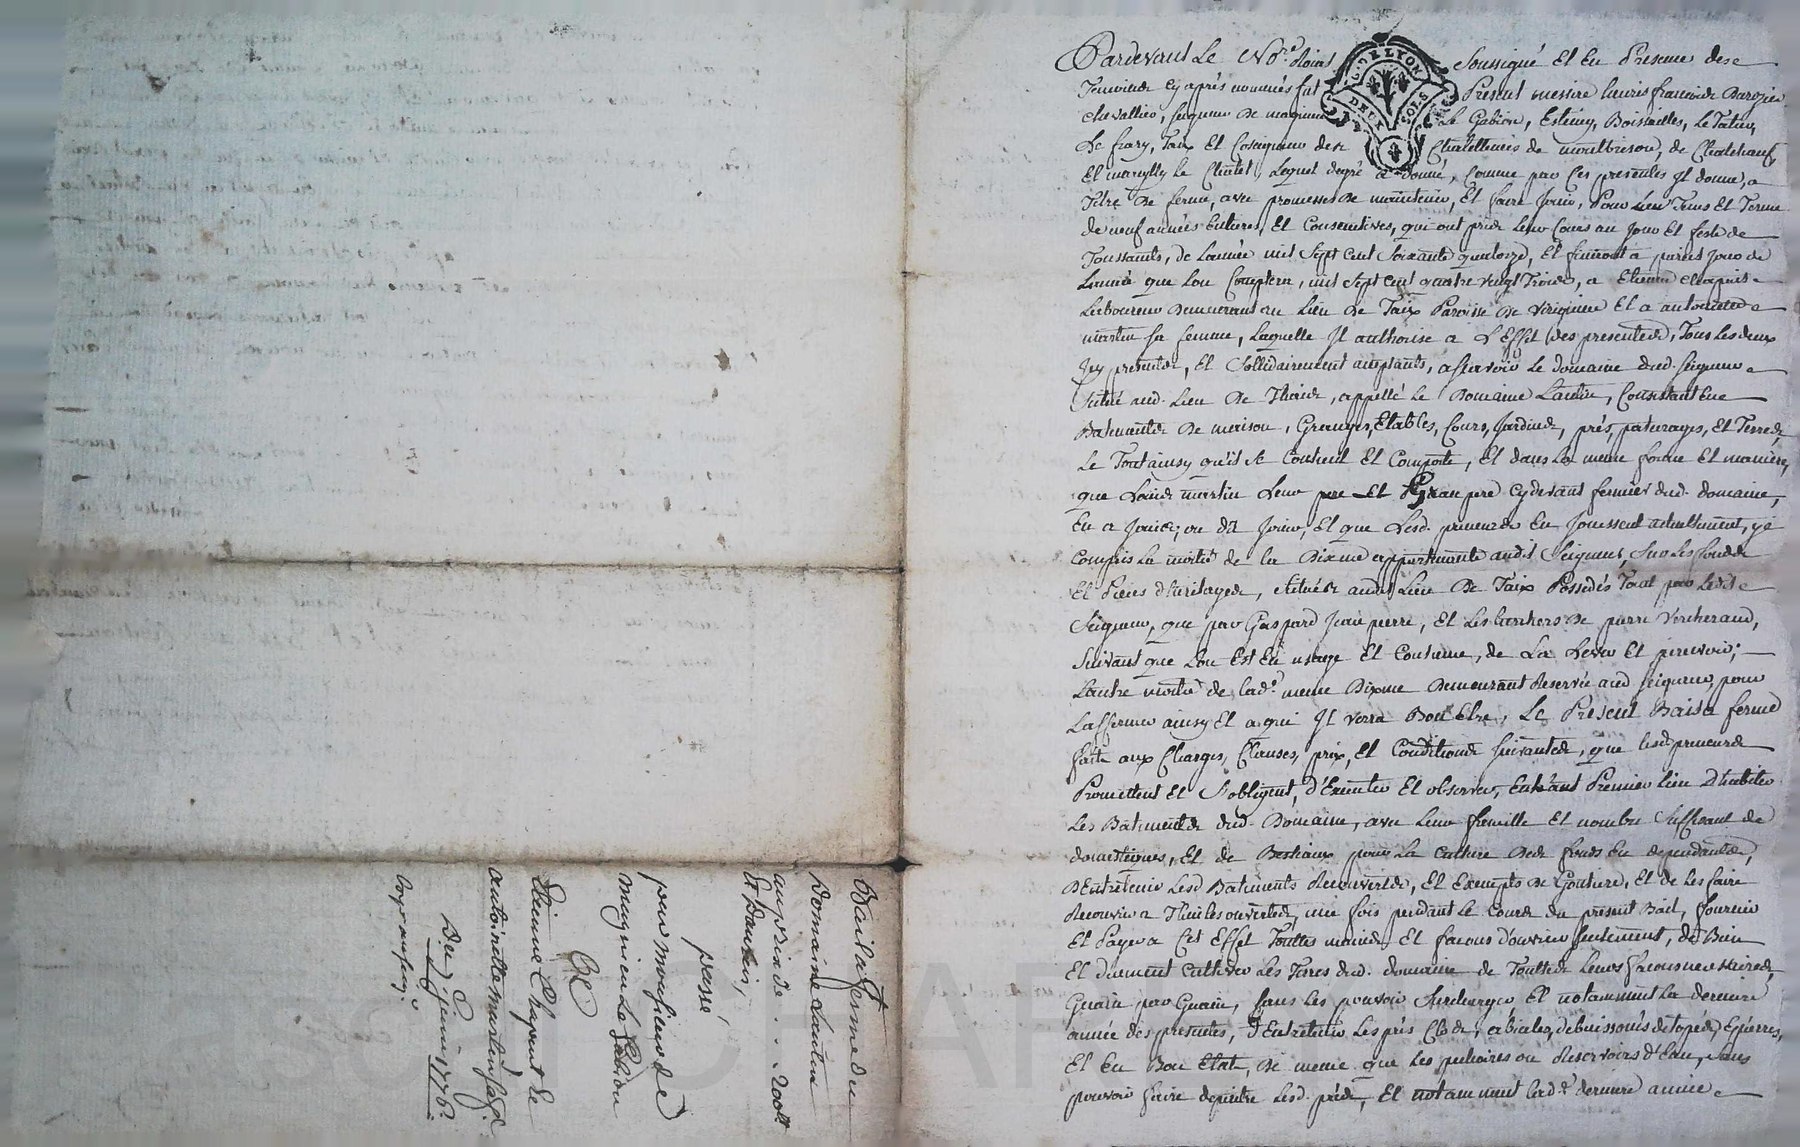 Pardevant Le No.re Roial Soussigné Et En Presence des
Temoins Cy après nommés fut Present messire Louis françois Barozier
chevallier, seigneur De magnieu Le Gabion, Estiney, Boisvailles, Le
Le frary, Taix Et Coseigneur des Chatellenies de montbrison, de Chatelneuf,
Et marcilly le Chatel, Lequel degré a donné, Comme par Ces presentes Jl donne, a
Titre De ferme, avec promesse De maintenir, Et faire Jouir, Pour Tems Et Terme
de neuf années Entieres, Et Consecutives, qui ont pris Leur Cours au Jour Et feste de
Toussaints, de Lannée mil Sept Cent Soixante quatorze, Et finiront a pareil Jour de
Lannée que Lon Comptera, mil Sept Cent quatre vingt Trois, a Etienne Chapuis
Laboureur Demeurant au Lieu De Taix Paroisse De Verigneu Et a antoinette
martin Sa femme, Laquelle Jl authorise a L'Effet des presentes, Tous Les deux
Jcy presents, Et Sollidairement acceptants, assavoir Le domaine dud. Seigneur
Situé aud. Lieu De Thaix, appellé Le Domaine Lautin, Consistant En
Batiments De maison, Granges, Etables, Cours, Jardins, prés, paturages, Et Terres,
Le Tout ainsy qu'il Se Contient Et Comporte, Et dans La meme forme Et maniere,
que Louis martin Leur pere Et Gran pere Cy devant fermier dud. domaine,
En a Jouis, ou dû Jouir, Et que Lesd. preneurs En Jouissent actuellement, y
Compris La moitié de la Dixme appartenante audit Seigneur, Sur Les fonds
Et Pieces d'heritages, Situés audit Lieu De Taix Possedés Tant par Ledit
Seigneur, que par Gaspard Jean pierre, Et Les heritiers De pierre Vercherand,
Suivant que Lon Est En usage Et Coutume, de La Lever Et percevoir;
Lautre moitié de lad.e meme Dixme Demeurant Reservée aud Seigneur, pour
L'affermer ainsy Et a qui Jl verra Bon Etre, Le Present Bail a ferme
fait aux Charges, Clauses, prix, Et Conditions Suivantes, que lesd preneurs
Promettent Et S'obligent, d'Executer Et observer, Entrant Premier Lieu D'habiter
Les Batiments dud. Domaine, avec Leur famille Et nombre Suffisant de
domestiques, Et de Bestiaux pour La Culture Des fonds En dependants,
D'Entretenir Lesd Batiments Recouverts, Et Exempts de Goutiere, Et de Les faire
Recouvrir a Thuiles ouvertes, une fois pendant Le Cours du present Bail, fournir
Et Payer a Cet Effet Touttes mains Et façons d'ouvrier Seulement, de Bien
Et duement Cultiver Les Terres dud. domaine de Touttes Leurs façons necessaires,
Guain par Guain, Sans Les pouvoir Surcharger Et notamment La derniere
année des presentes, d'Entretenir Les prés Clos, abiales, debuissonés detopés, Epierres,
Et En Bon Etat, De meme que Les pechoires ou Reservoirs d'Eau, Sans
pouvoir faire depaitre Lesd. prés, Et notamment Lad.e derniere année
Bail a ferme du
Domaine Lautin
au prix de . . . 200tt
Et Dautres,
passé
par monsieur de
magnieu Le Gabion
a
Etienne Chapuis Et
antoinette martin sa f.
Du 5 juin 1776.